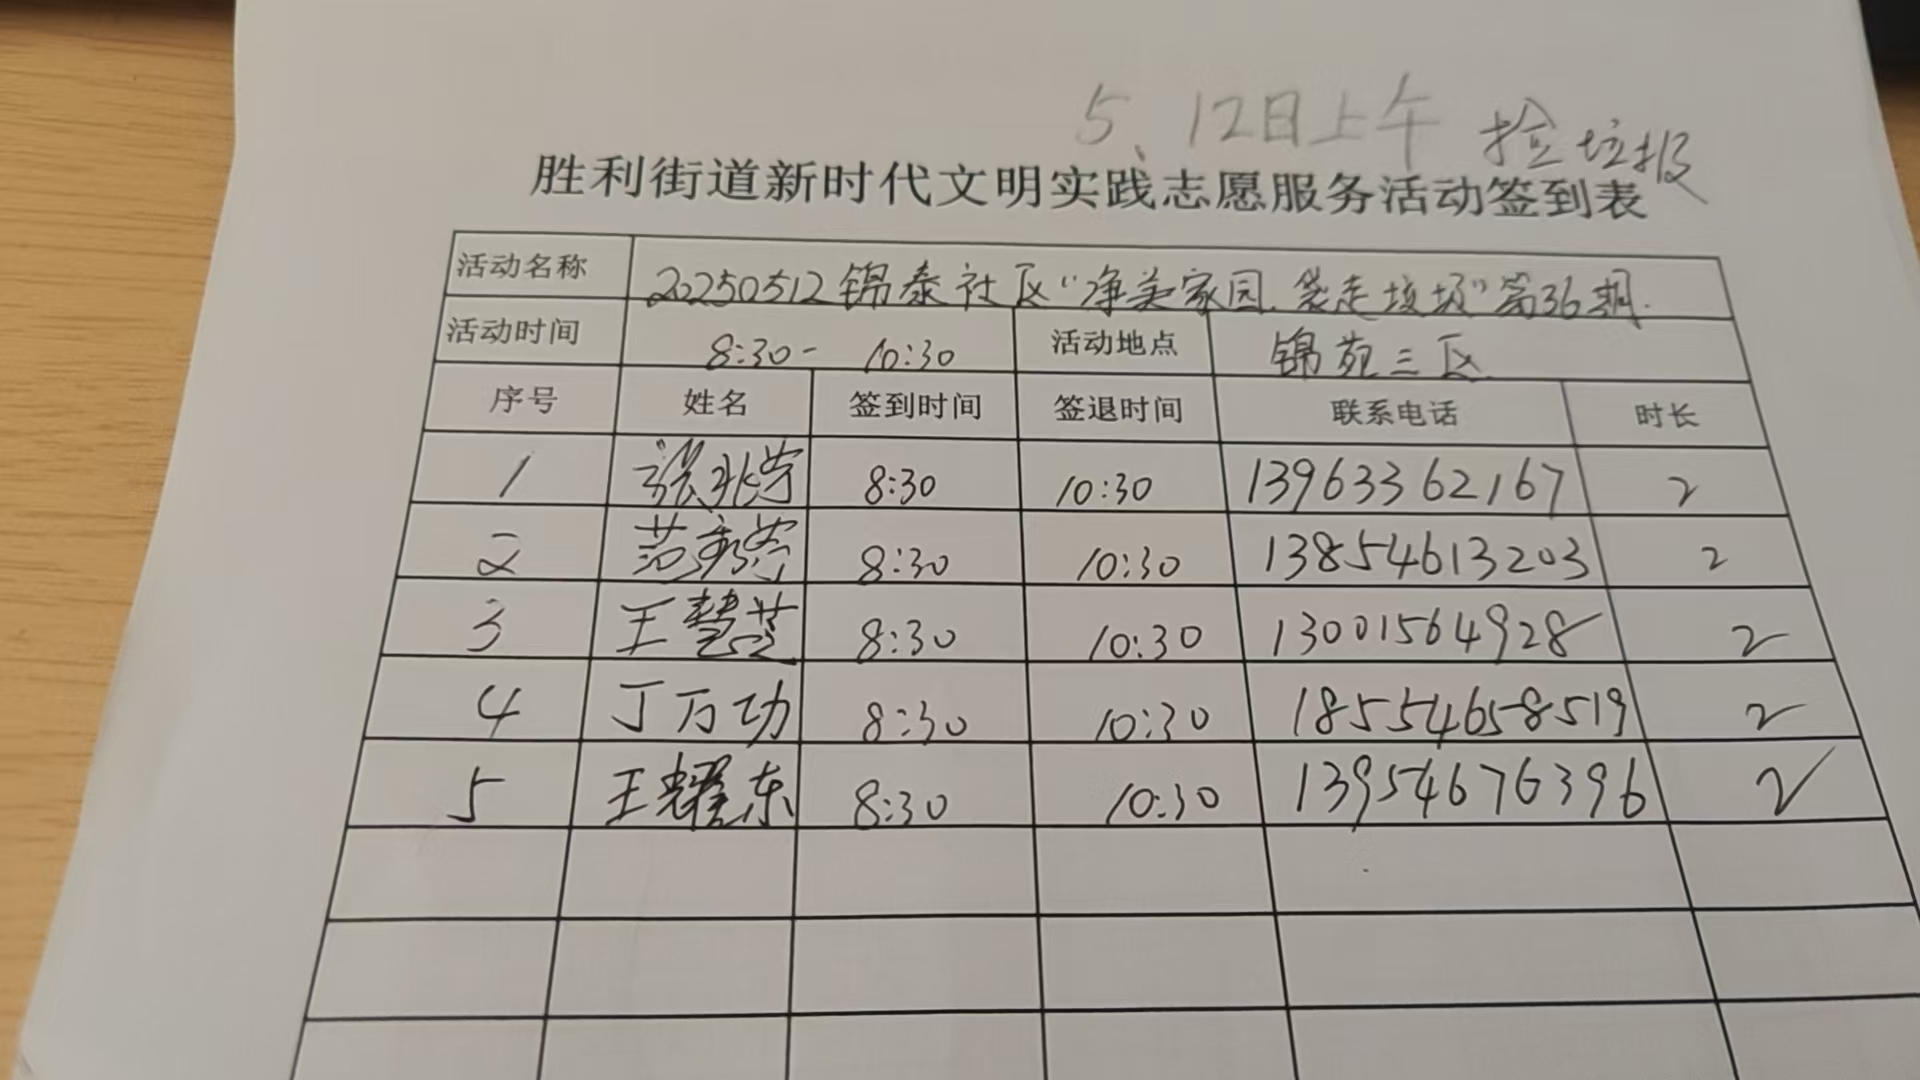 5、12日上午 捡垃圾
胜利街道新时代文明实践志愿服务活动签到表
活动名称 20250512锦泰社区“净美家园.袋走垃圾”第36期.
活动时间 8:30- 10:30 活动地点 锦苑三区
序号 姓名 签到时间 签退时间 联系电话 时长
1 张兆芳 8:30 10:30 13963362167 2
2 范秀芳 8:30 10:30 13854613203 2
3 王慧芝 8:30 10:30 13001564928 2
4 丁万功 8:30 10:30 18554658519 2
5 王耀东 8:30 10:30 13954676396 2